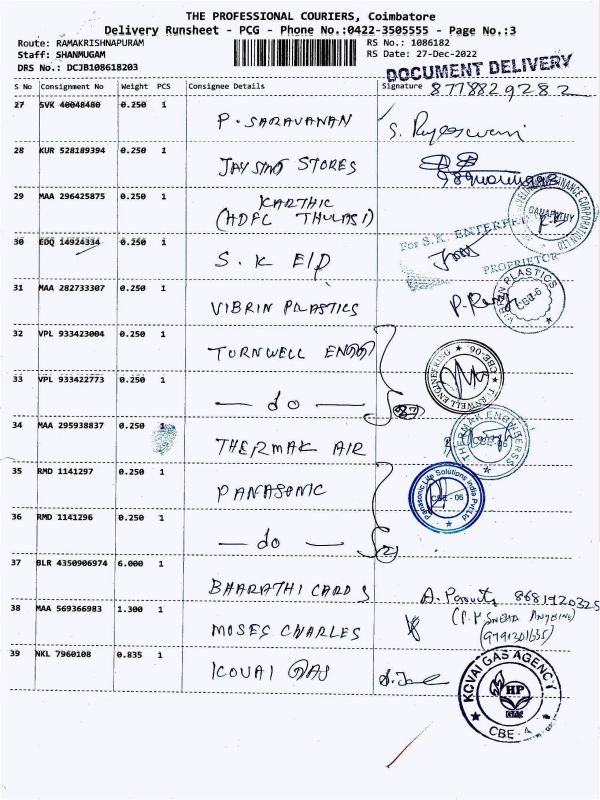 THE PROFESSIONAL COURIERS, Coimbatore
Delivery Runsheet - PCG - Phone No.:0422-3505555 - Page No.:3
Route: RAMAKRISHNAPURAM
RS No.: 1086182
Staff: SHANMUGAM
RS Date: 27-Dec-2022
DRS No.: DCJB108618203
DOCUMENT DELIVERY
S No Consignment No Weight PCS Consignee Details Signature 8778829282
27 SVK 40048480 0.250 1
P. SARAVANAN
28 KUR 528189394 0.250 1
JAY STORES
29 MAA 296425875 0.250 1
KARTHIC
(HDFC THULASI)
GANAPATHY
30 EDQ 14924334 0.250 1
For S.K. ENTERPR
S. K E/P
PROPRIETOR
31 MAA 282733307 0.250 1
VIBRIN PLASTICS
VIBRIN PLASTICS
CBE-6
32 VPL 933423004 0.250 1
TURNWELL ENGG
TURNWELL ENGINEERING
CBE-06.
33 VPL 933422773 0.250 1
do
34 MAA 295938837 0.250 1
THERMAK AIR
THERMAK ENGINEERSS
CBE-06
35 RMD 1141297 0.250 1
PANASONIC
Panasonic Life Solutions India Pvt Ltd
CBE - 06
36 RMD 1141296 0.250 1
do
(2)
37 BLR 4350906974 6.000 1
BHARATHI CARDS
38 MAA 569366983 1.300 1
MOSES CHARLES
39 NKL 7960108 0.835 1
KOVAI GAS
KOVAI GAS AGENCY
HP
CBE - 4